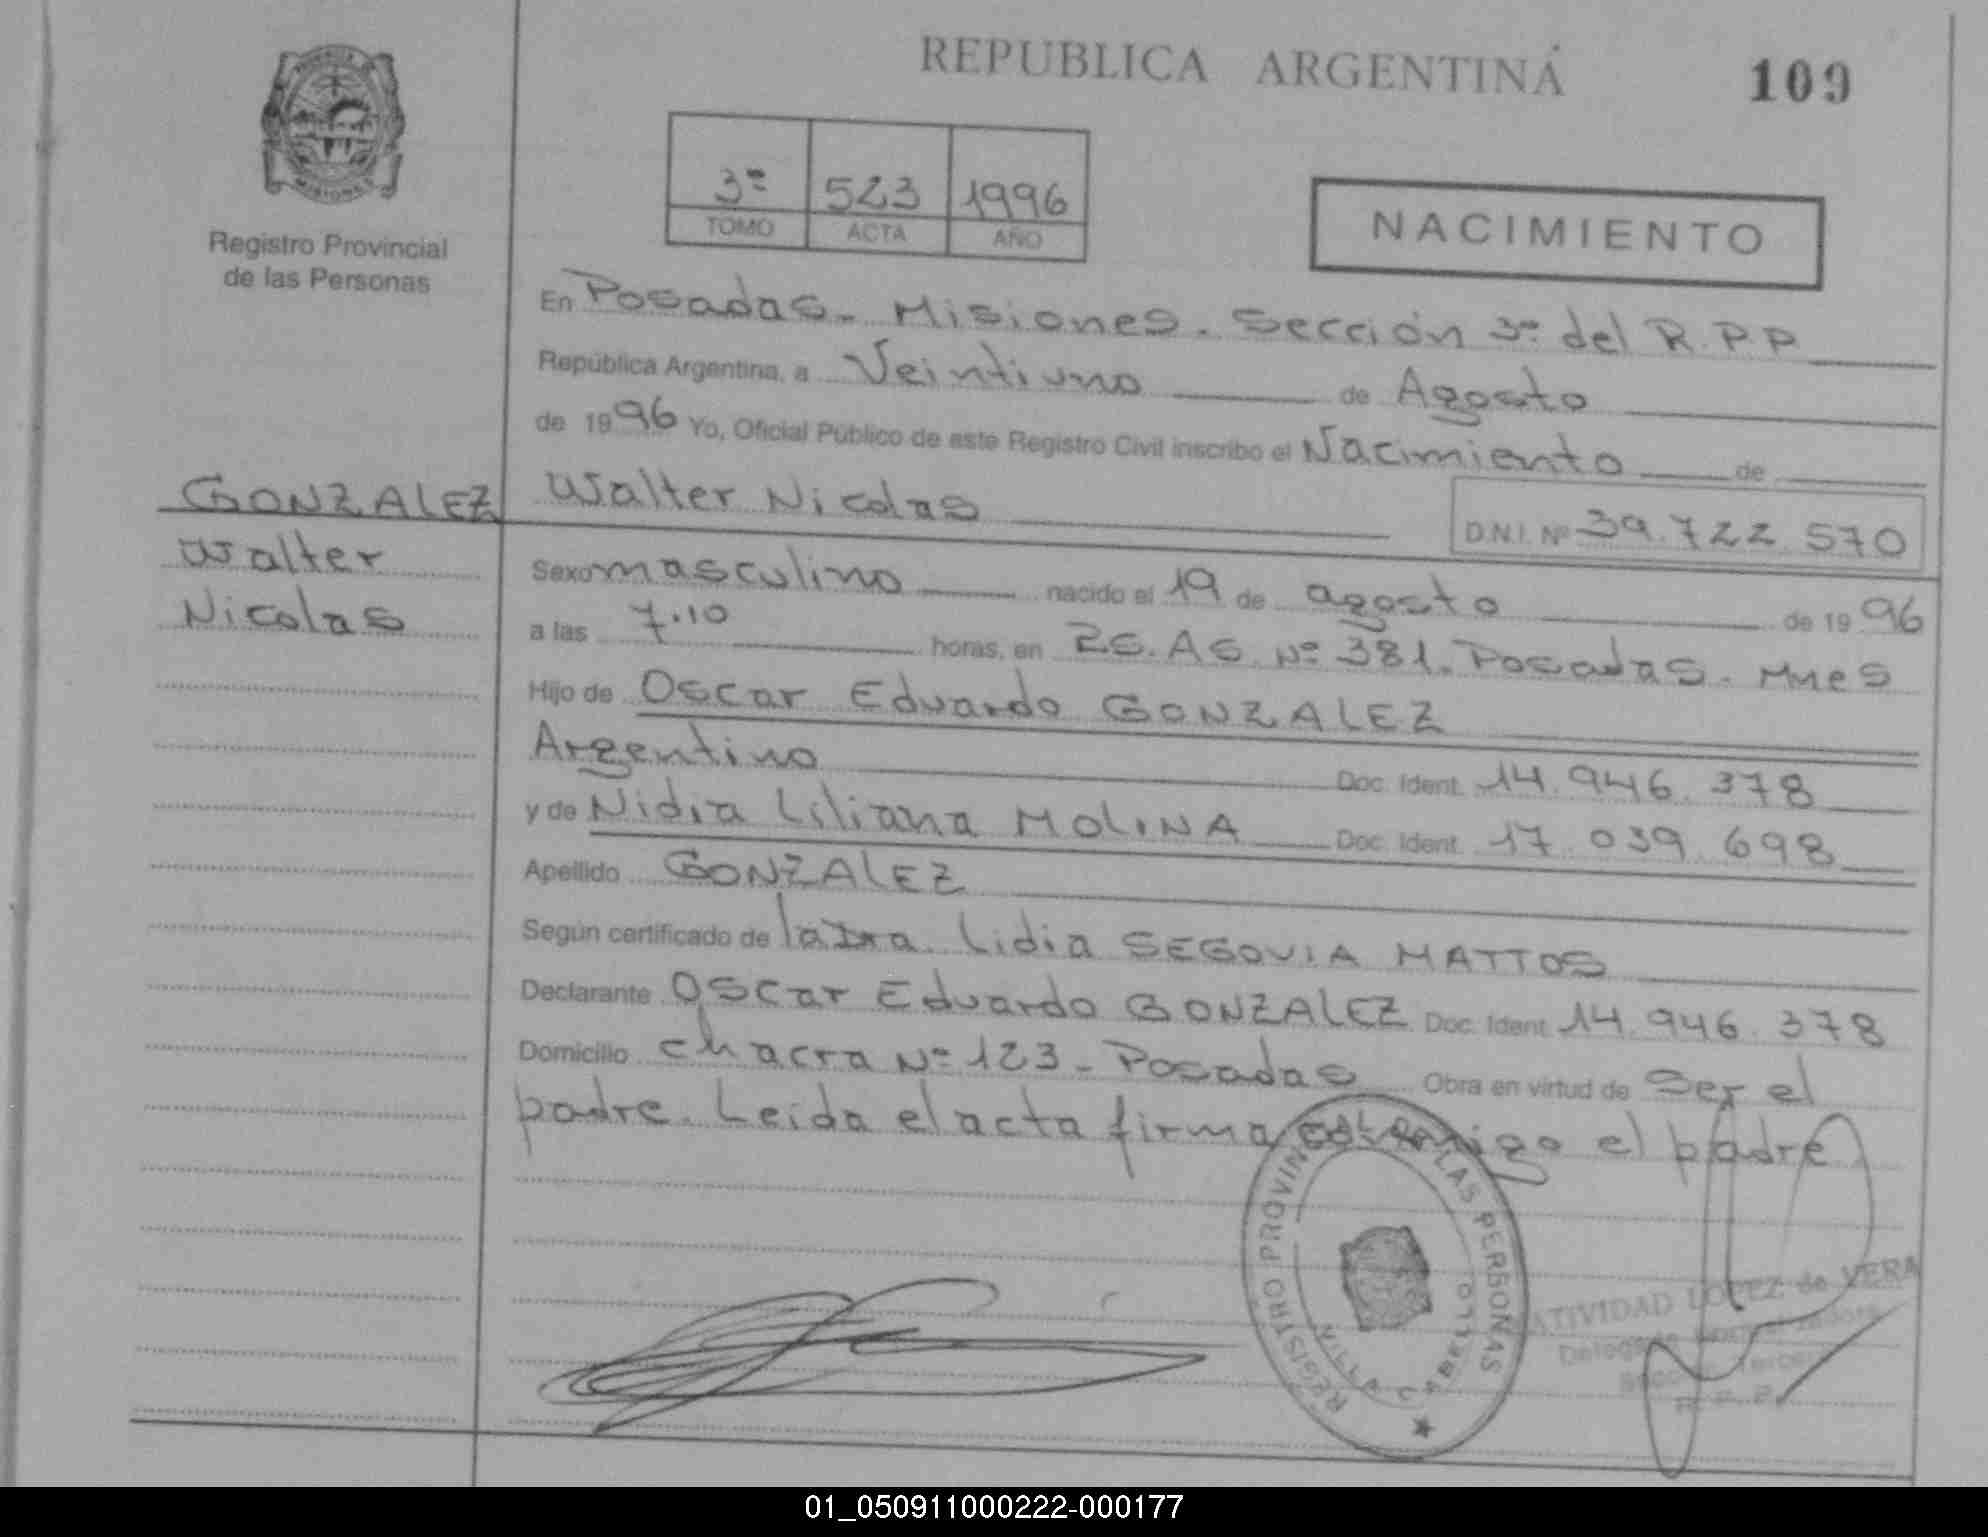 REPUBLICA ARGENTINA
109
MISIONES
Registro Provincial
de las Personas
3º 523 1996
TOMO ACTA AÑO
NACIMIENTO
En Posadas - Misiones. Sección 3º del R.P.P
República Argentina, a Veintiuno de Agosto
de 1996 Yo, Oficial Público de este Registro Civil inscribo el Nacimiento de
GONZALEZ Walter Nicolas
D.N.I. Nº 39.722.570
Walter
Nicolas
Sexo masculino nacido el 19 de agosto de 1996
a las 7.10 horas, en Bs. As. Nº 381. Posadas. Mnes
Hijo de Oscar Eduardo GONZALEZ
Argentino Doc. Ident. 14.946.378
y de Nidia Liliana MOLINA Doc. Ident. 17.039.698
Apellido GONZALEZ
Según certificado de la Dra. Lidia SEGOVIA MATTOS
Declarante Oscar Eduardo GONZALEZ Doc. Ident. 14.946.378
Domicilio chacra Nº 123 - Posadas Obra en virtud de Ser el
padre. Leida el acta firma conmigo el padre
REGISTRO PROVINCIAL DE LAS PERSONAS
VILLA CABELLO
NATIVIDAD LOPEZ de VERA
R. P. P.
01_050911000222-000177